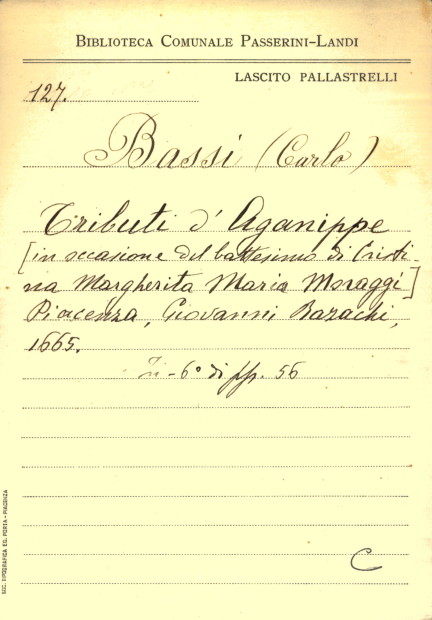 BIBLIOTECA COMUNALE PASSERINI-LANDI
LASCITO PALLASTRELLI
127.
Bassi (Carlo)
Tributi d'Aganippe
[in occasione del battesimo di Cristi-
na Margherita Maria Moraggi]
Piacenza, Giovanni Bazachi,
1665.
In-6° di pp. 56
C
SOC. TIPOGRAFICA ED. PORTA - PIACENZA